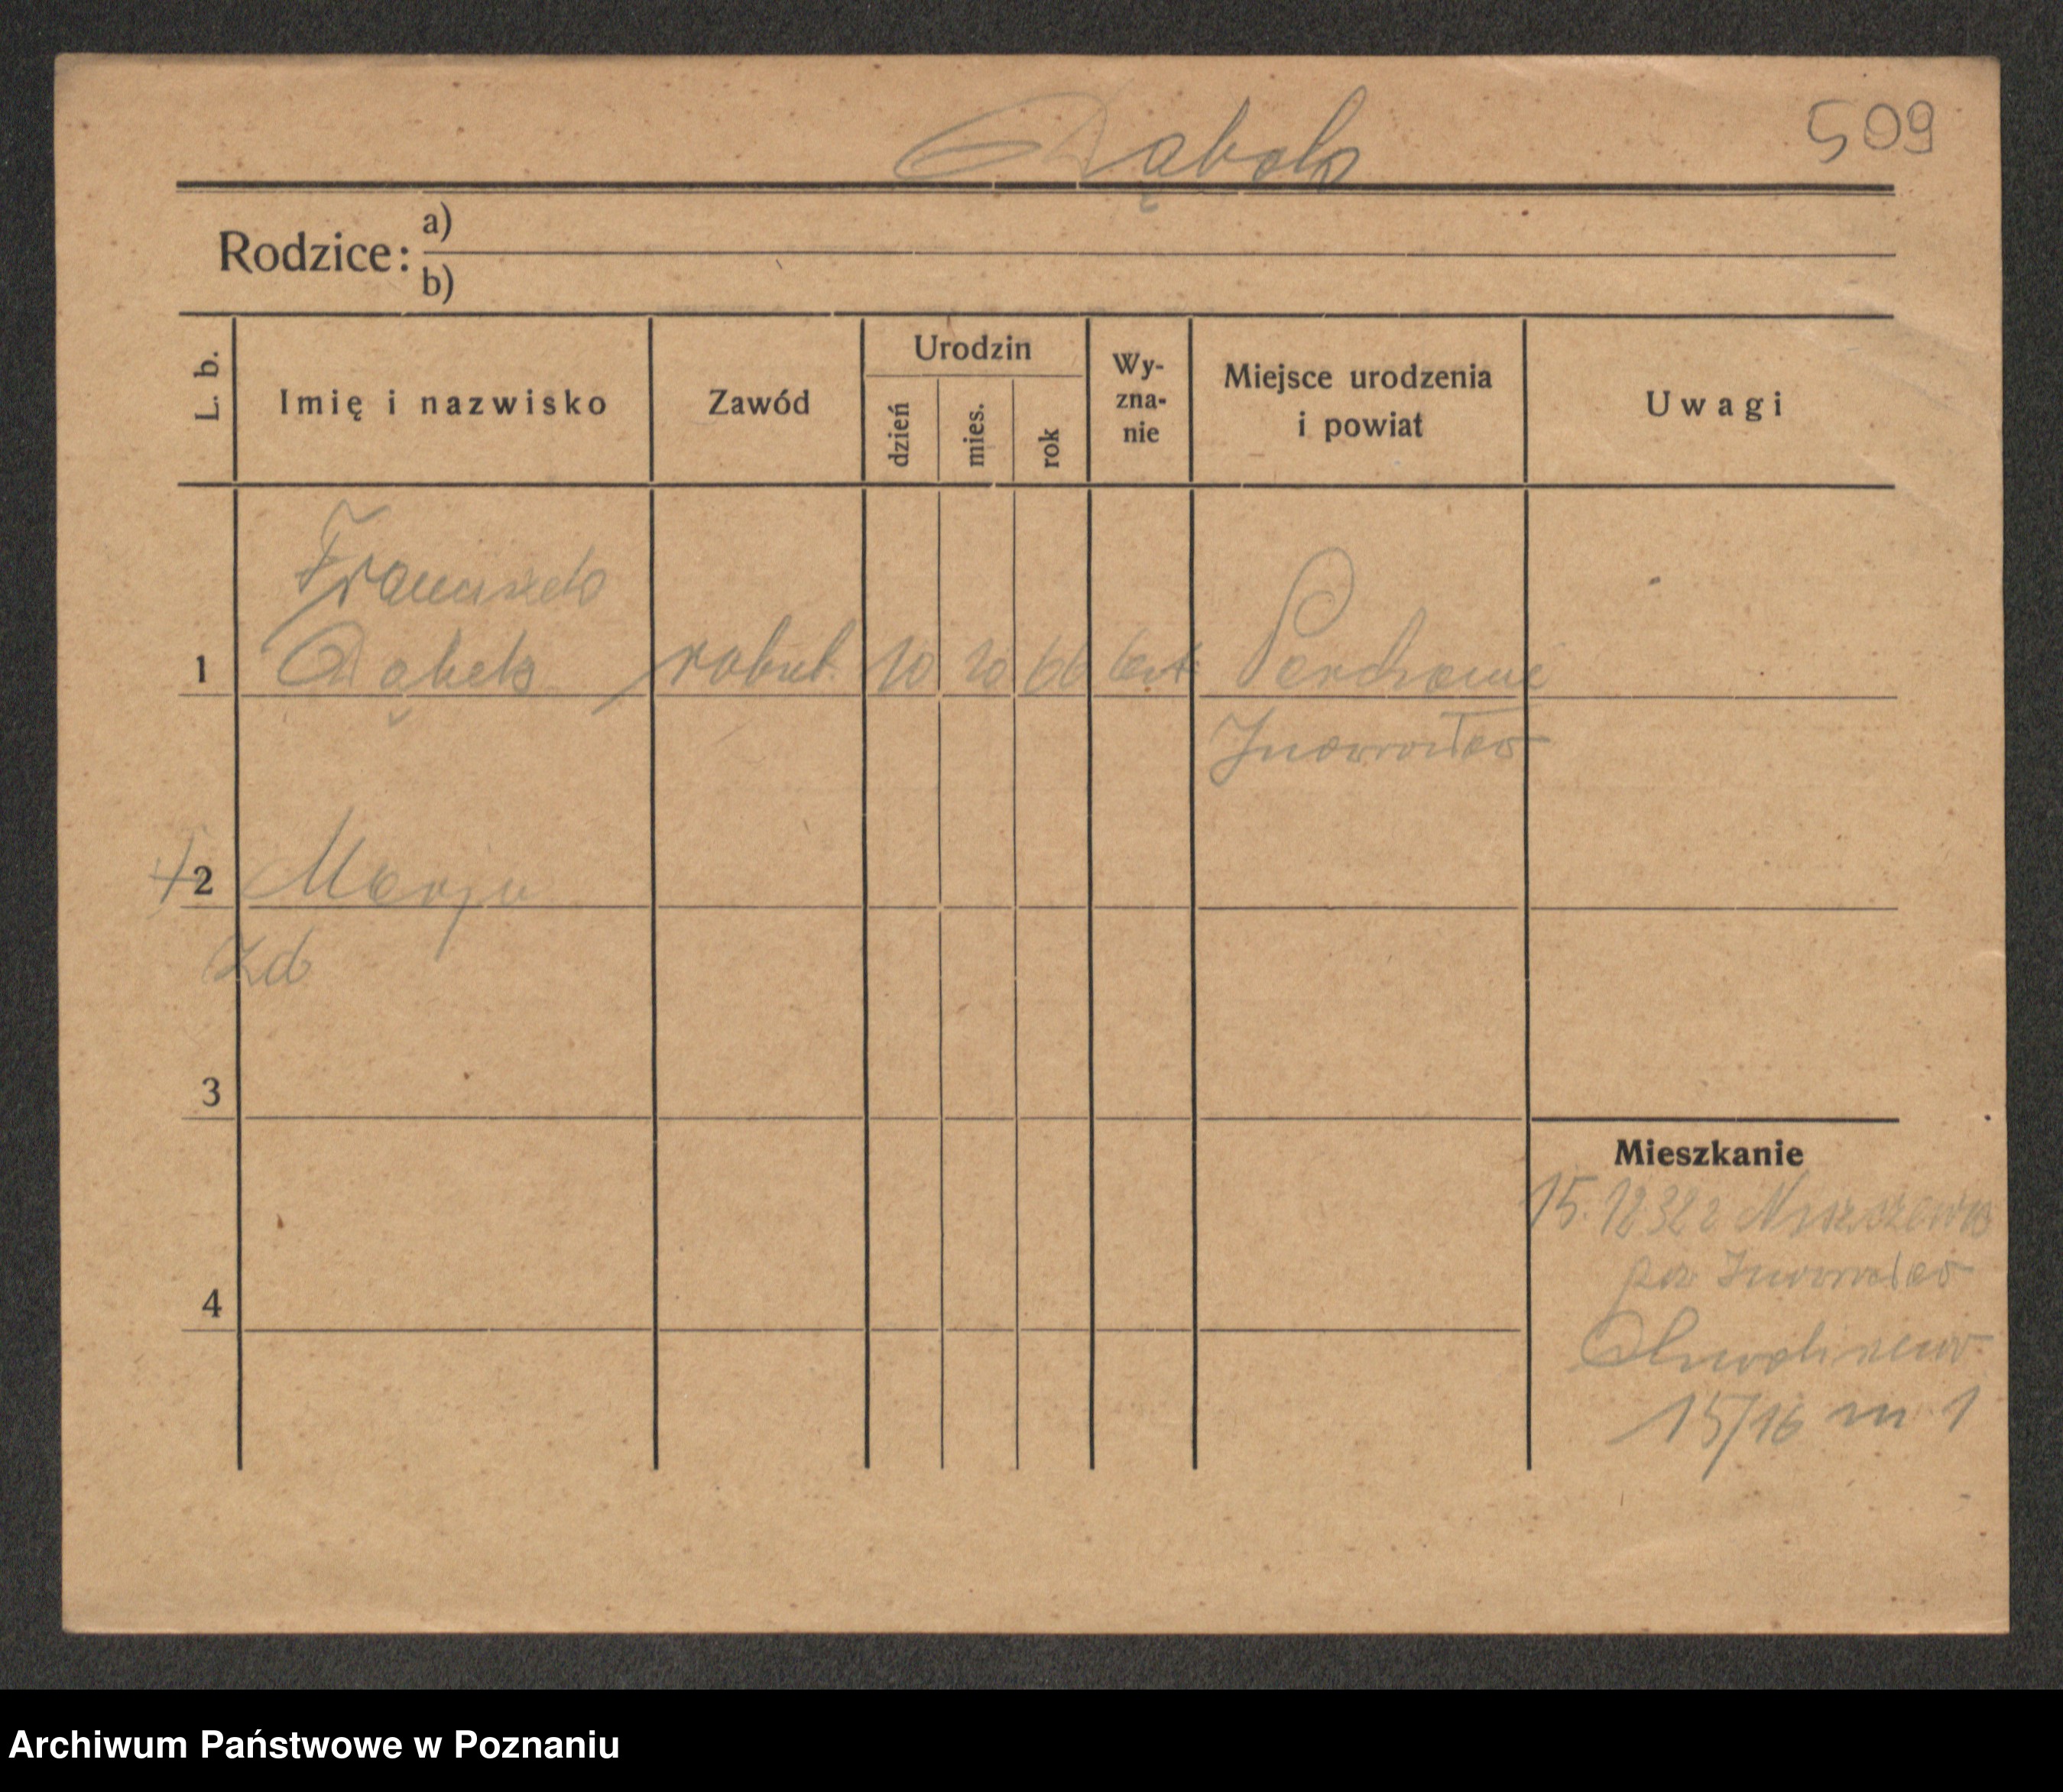 Dąbek
509
Rodzice:
a)
b)
L. b.
Imię i nazwisko
Zawód
Urodzin
dzień
mies.
rok
Wy-
zna-
nie
Miejsce urodzenia
i powiat
Uwagi
Franciszek
1 Dąbek robot. 10 10 66 kat Parchanie
Inowrocław
+ 2 Marja
zd
3
Mieszkanie
15. 12 32 z
pow Inowrocław
4
15/16 m 1
Archiwum Państwowe w Poznaniu